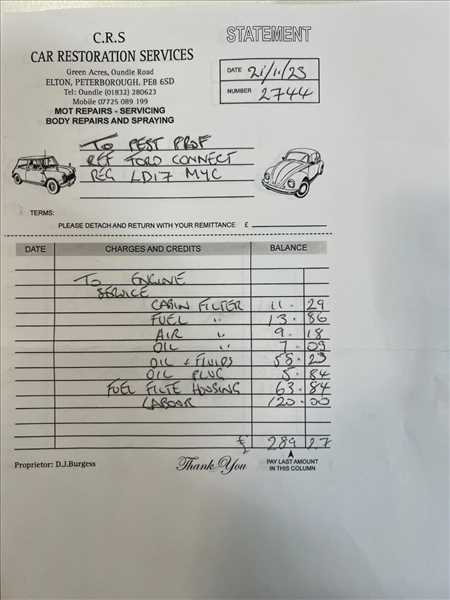 C.R.S
CAR RESTORATION SERVICES
Green Acres, Oundle Road
ELTON, PETERBOROUGH, PE8 6SD
Tel: Oundle (01832) 280623
Mobile 07725 089 199
MOT REPAIRS - SERVICING
BODY REPAIRS AND SPRAYING
STATEMENT
DATE 21/11/23
NUMBER 2744
TO PEST PROF
REF FORD CONNECT
REG LD17 MYC
TERMS:
PLEASE DETACH AND RETURN WITH YOUR REMITTANCE £
DATE CHARGES AND CREDITS BALANCE
TO ENGINE
SERVICE
CABIN FILTER 11 . 29
FUEL " 13 . 86
AIR " 9 . 18
OIL " 7 . 03
OIL + FLUIDS 58 . 23
OIL PLUG 5 . 84
FUEL FILTE HOUSING 63 . 84
LABOUR 120 . 00
£ 289 27
Proprietor: D.J.Burgess
Thank You
PAY LAST AMOUNT
IN THIS COLUMN